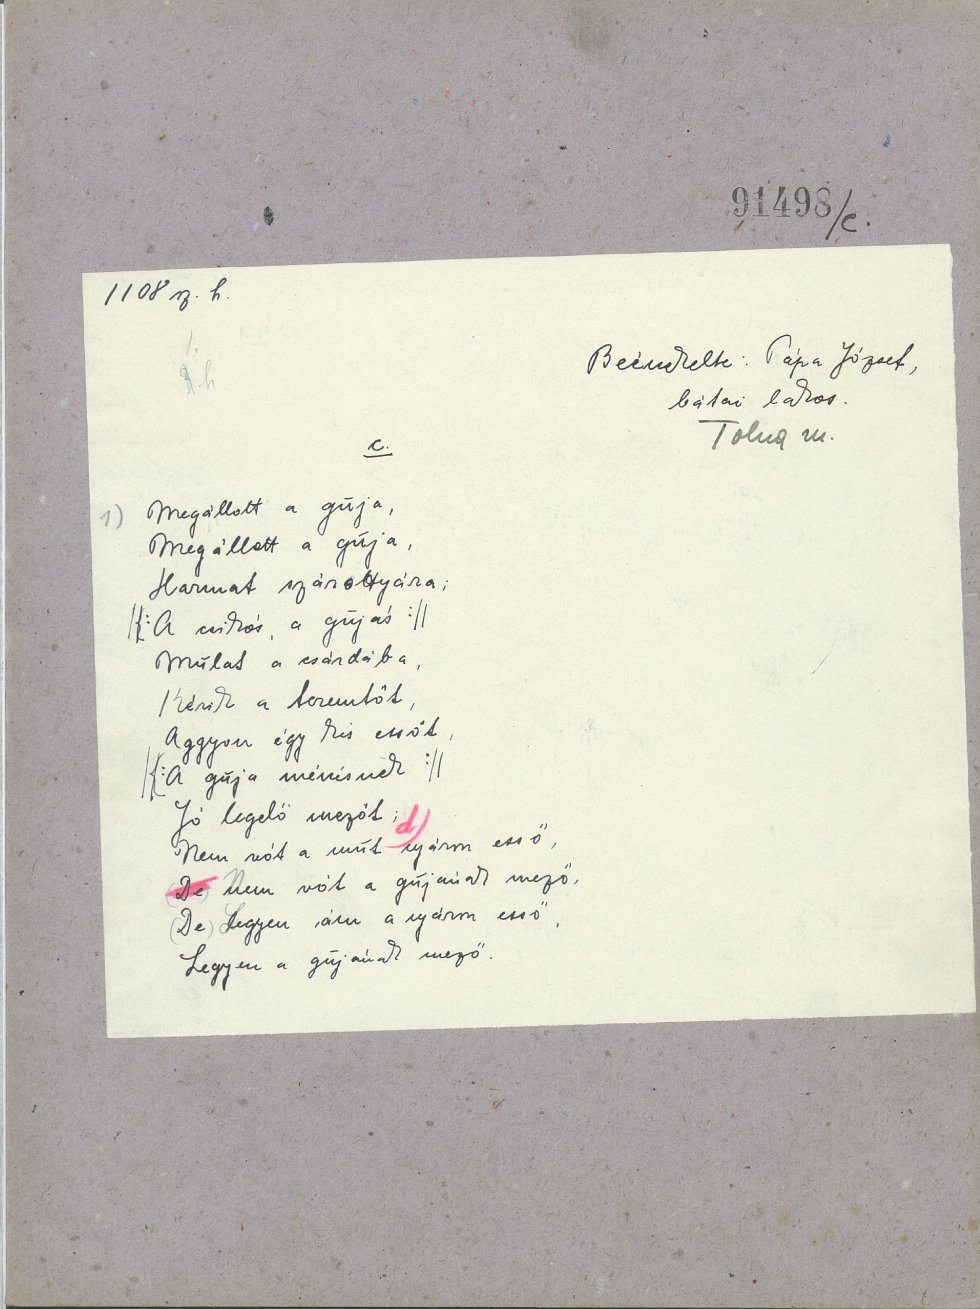 91498/c.
1108 sz. h.
Beénekelte: Pápa József,
bátai lakos.
Tolna m.
c.
1) Megállott a gúja,
Megállott a gúja,
Harmat szárottyára;
||: A csikós, a gújás :||
Múlat a csárdába,
Kérik a teremtőt,
Aggyon égy kis essőt,
||: A gúja ménésnek :||
Jó legelő mezőt;
d)
Nem vót a mút nyáron esső,
De Nem vót a gújának mező,
(De) Legyen ám a nyáron esső,
Legyen a gújának mező.